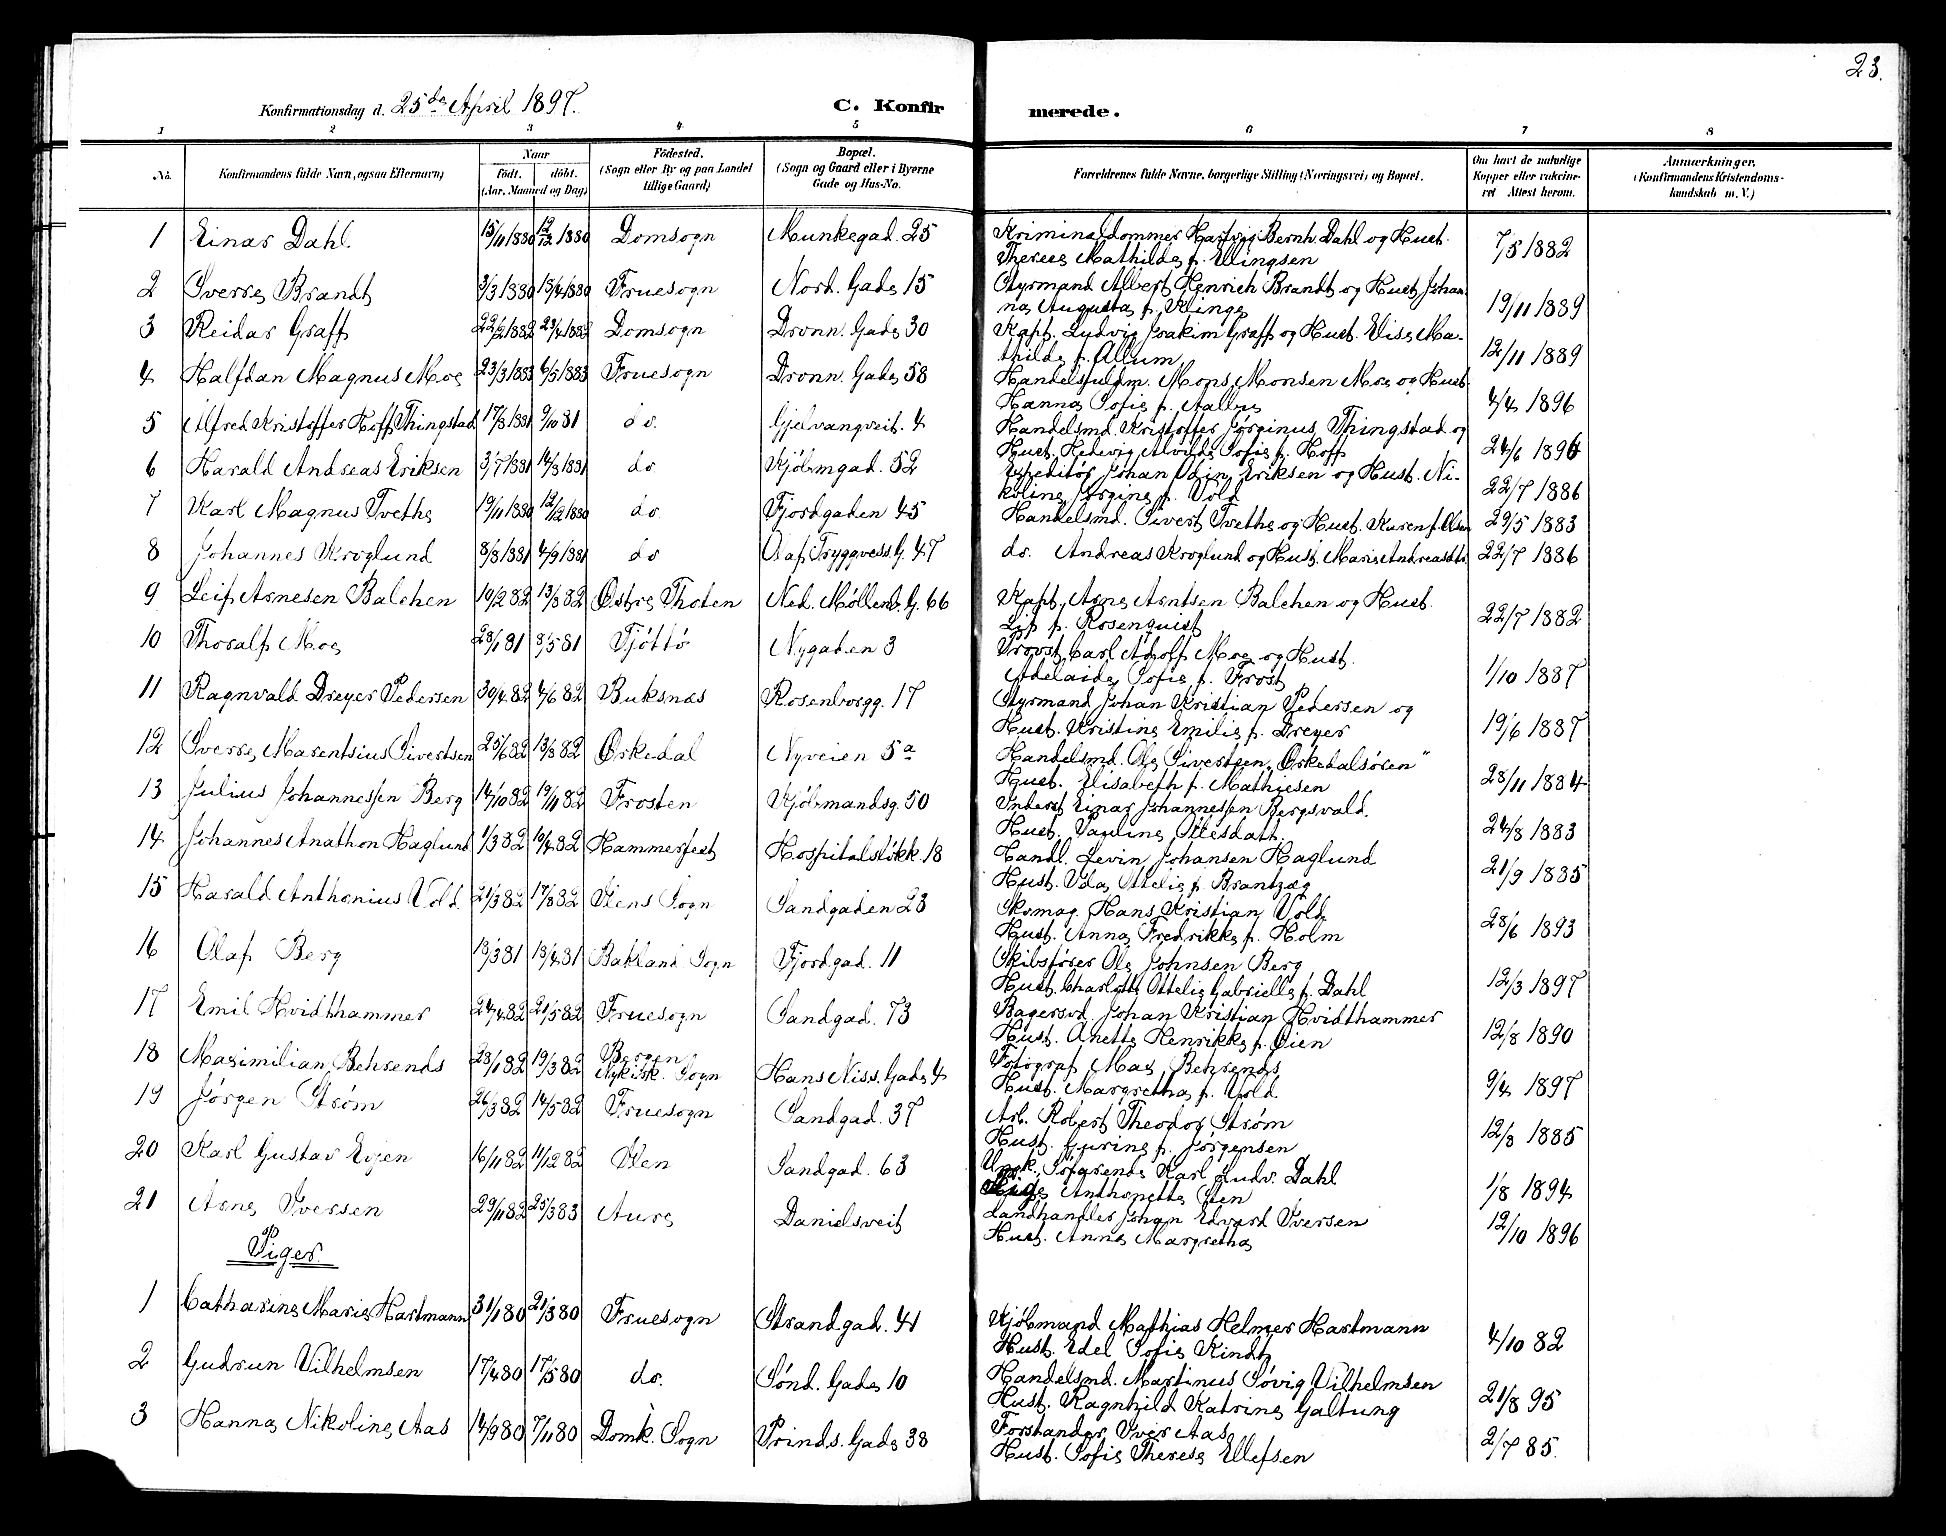 23.
Konfirmationsdag d. 25de April 1897.
C. Konfirmerede.
1 2 3 4 5 6 7 8
No.
Konfirmandens fulde Navn, ogsaa Efternavn)
Naar
født. døbt.
(Aar, Maaned og Dag)
Fødested.
(Sogn eller By og paa Landet
tillige Gaard)
Bopæl.
(Sogn og Gaard eller i Byerne
Gade og Hus-No.
Forældrenes fulde Navne, borgerlige Stilling (Næringsvei) og Bopæl.
Om havt de naturlige
Kopper eller vaccine-
ret Attest herom.
Anmærkninger.
(Konfirmandens Kristendoms-
kundskab m. V.)
1 Einar Dahl. 15/11 1880 12/12 1880 Domsogn Munkegad. 25 Kriminaldommer Hartvig Bernh. Dahl og Hust. 7/5 1882
Therese Mathilde f. Ellingsen
2 Sverre Brandt 3/3 1880 18/4 1880 Fruesogn Nord. Gade 15 Styrmand Albert Henrich Brandt og Hust. Johan-
na Augusta f. Klinge 19/11 1889
3 Reidar Graff 22/2 1882 29/4 1882 Domsogn Dronn. Gade 30 Kapt. Ludvig Joakim Graff og Hust. Elise Ma-
thilde f. Allum 12/11 1889
4 Halfdan Magnus Moe 23/3 1883 6/5 1883 Fruesogn Dronn. Gade 58 Handelsfuldm. Mons Monsen Moe og Hust.
Hanna Sofie f. Aalbye 4/4 1896
5 Alfred Kristoffer Hoff Thingstad 17/8 1881 9/10 81 do. Gjelvangveit. 4 Handelsmd. Kristoffer Jørginus Thingstad og
Hust. Hedevig Alvilde Sofie f. Hoff 24/6 1896
6 Harald Andreas Eriksen 3/7 1881 14/8 1881 do Kjøbmgad. 52 Expeditør Johan Odin Eriksen og Hust. Ni-
koline Jørgine f. Vold 22/7 1886
7 Karl Magnus Tvethe 19/11 1880 12/12 1880 do. Fjordgaden 45 Handelsmd. Sivert Tvethe og Hust. Karen f. Olsen 29/5 1883
8 Johannes Kroglund 8/8 1881 4/9 1881 do Olaf Tryggvess. G. 47 do. Andreas Kroglund og Hust. Marie Andreasdtr. 22/7 1886
9 Leif Arnesen Balchen 10/2 82 13/8 82 Østre Thoten Ned. Møllenb. G. 66 Kapt. Arne Arntsen Balchen og Hust.
f. Rosenquist 22/7 1882
10 Thoralf Moe 28/1 81 8/5 81 Tjøttø Nygaden 3 Provst Carl Adolf Moe og Hust.
Adelaide Sofie f. Frost 1/10 1887
11 Ragnvald Dreyer Pedersen 30/4 82 4/6 82 Buksnæs Rosenborgg. 17 Styrmand Johan Kristian Pedersen og
Hust. Kristine Emilie f. Dreyer 19/6 1887
12 Sverre Marentsius Sivertsen 25/6 82 13/8 82 Ørkedal Nyveien 5a Handelsmd. Ole Sivertsen, Ørkedalsøren"
Hust. Elisabeth f. Mathiesen 28/11 1884
13 Julius Johannessen Berg 14/10 82 19/11 82 Frosten Kjøbmandsg. 50 Inderst Einar Johannessen Bergsvald.
Hust. Pauline Ottesdatt. 24/8 1883
14 Johannes Anathon Haglund 1/3 82 10/4 82 Hammerfest Hospitalsløkk. 18 Handl. Levin Johansen Haglund
Hust. Ida Ottelie f. Brantzæg 21/9 1885
15 Harald Anthonius Vold 21/3 82 17/8 82 Ilens Sogn Sandgaden 23 Skomag. Hans Kristian Vold
Hust. Anna Fredrikke f. Holm 28/6 1893
16 Olaf Berg 13/3 81 18/4 81 Bakland Sogn Fjordgad. 11 Skibsfører Ole Johnsen Berg
Hust. Charlotte Ottelie Gabrielle f. Dahl 12/3 1897
17 Emil Hvidthammer 24/4 82 21/5 82 Fruesogn Sandgad. 73 Bagersvd. Johan Kristian Hvidthammer
Hust. Anette Henrikke f. Øien 12/8 1890
18 Maximilian Behrends 28/1 82 19/3 82 Bergen
Nykirk. Sogn Hans Niss. Gade 4 Fotograf Max Behrends
Hust. Margretha f. Vold 9/4 1897
19 Jørgen Strøm 26/3 82 14/5 82 Fruesogn Sandgad. 37 Arb. Robert Theodor Strøm
Hust. Gurine f. Jørgensen 12/8 1885
20 Karl Gustav Evjen 16/11 82 11/12 82 Ilen Sandgad. 63 Ungk. Søfarende Karl Ludv. Dahl
Pige Anthonette Sten 1/8 1894
21 Arne Iversen 29/11 82 25/3 83 Aure Danielsveit Landhandler Johan Edvard Iversen
Hust. Anna Margretha 12/10 1896
Piger.
1 Catharine Marie Hartmann 31/1 80 21/3 80 Fruesogn Strandgad. 41 Kjøbmand Mathias Helmer Hartmann
Hust. Edel Sofie Kindt 4/10 82
2 Gudrun Vilhelmsen 17/4 80 17/5 80 do. Sønd. Gade 10 Handelsmd. Martinus Søvig Vilhelmsen
Hust. Ragnhild Katrine Galtung 21/8 95
3 Hanna Nikoline Aas 14/9 80 7/11 80 Domk. Sogn Prinds. Gade 38 Forstander Iver Aas
Hust. Sofie Therese Ellefsen 2/7 85.